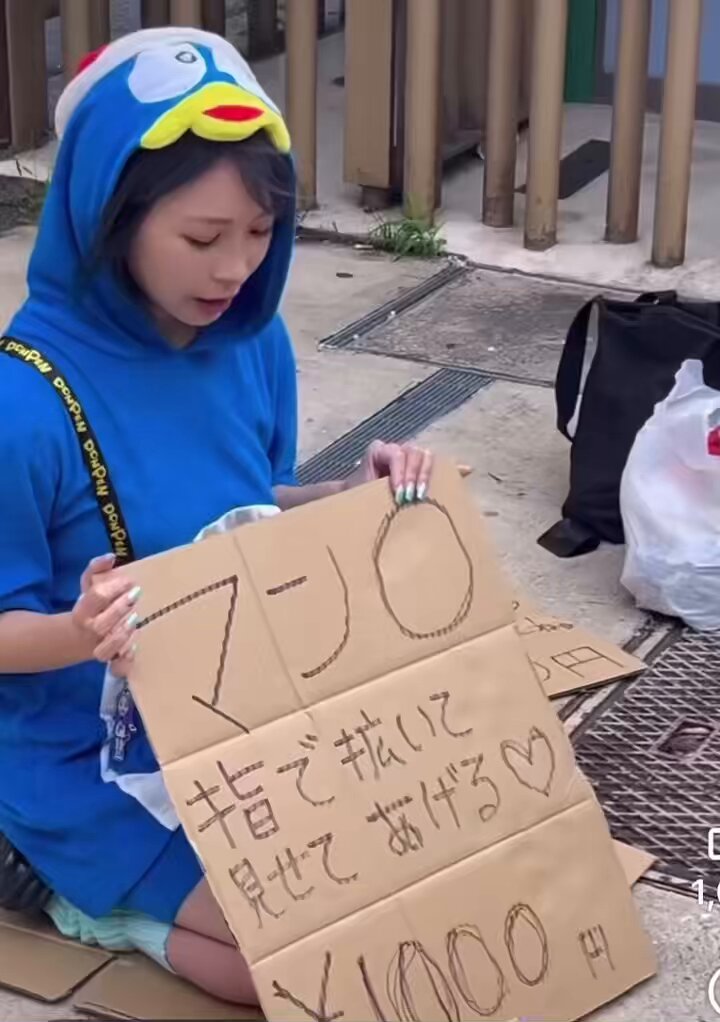 マン〇
指で拡いて
見せてあげる♡
¥1000円
DONPEN DONPEN DONPEN DONPEN DONPEN
円